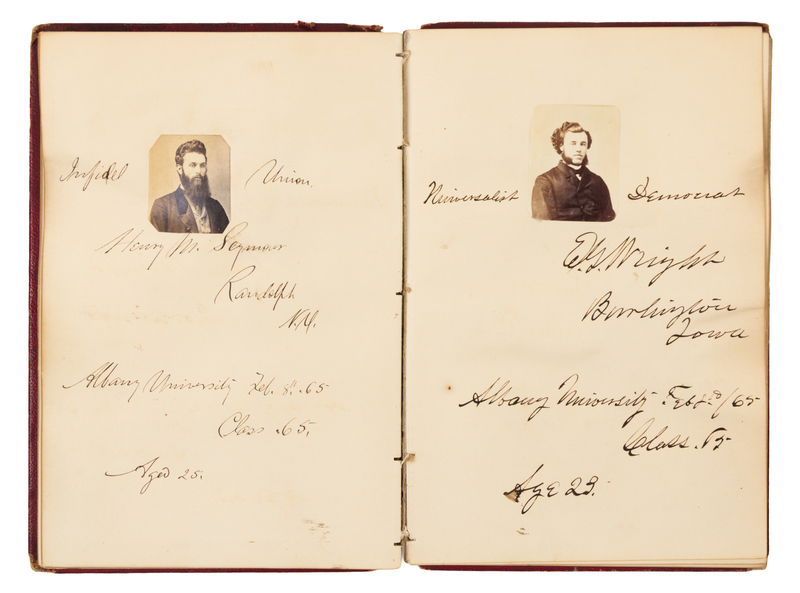 Infidel Union.
Henry M. Seymour
Randolph
N.Y.
Albany University Feb. 8" .65
Class .65.
Aged 25.
Universalist Democrat
Wright
Burlington
Iowa
Albany University /65
Class .65
Age 23.